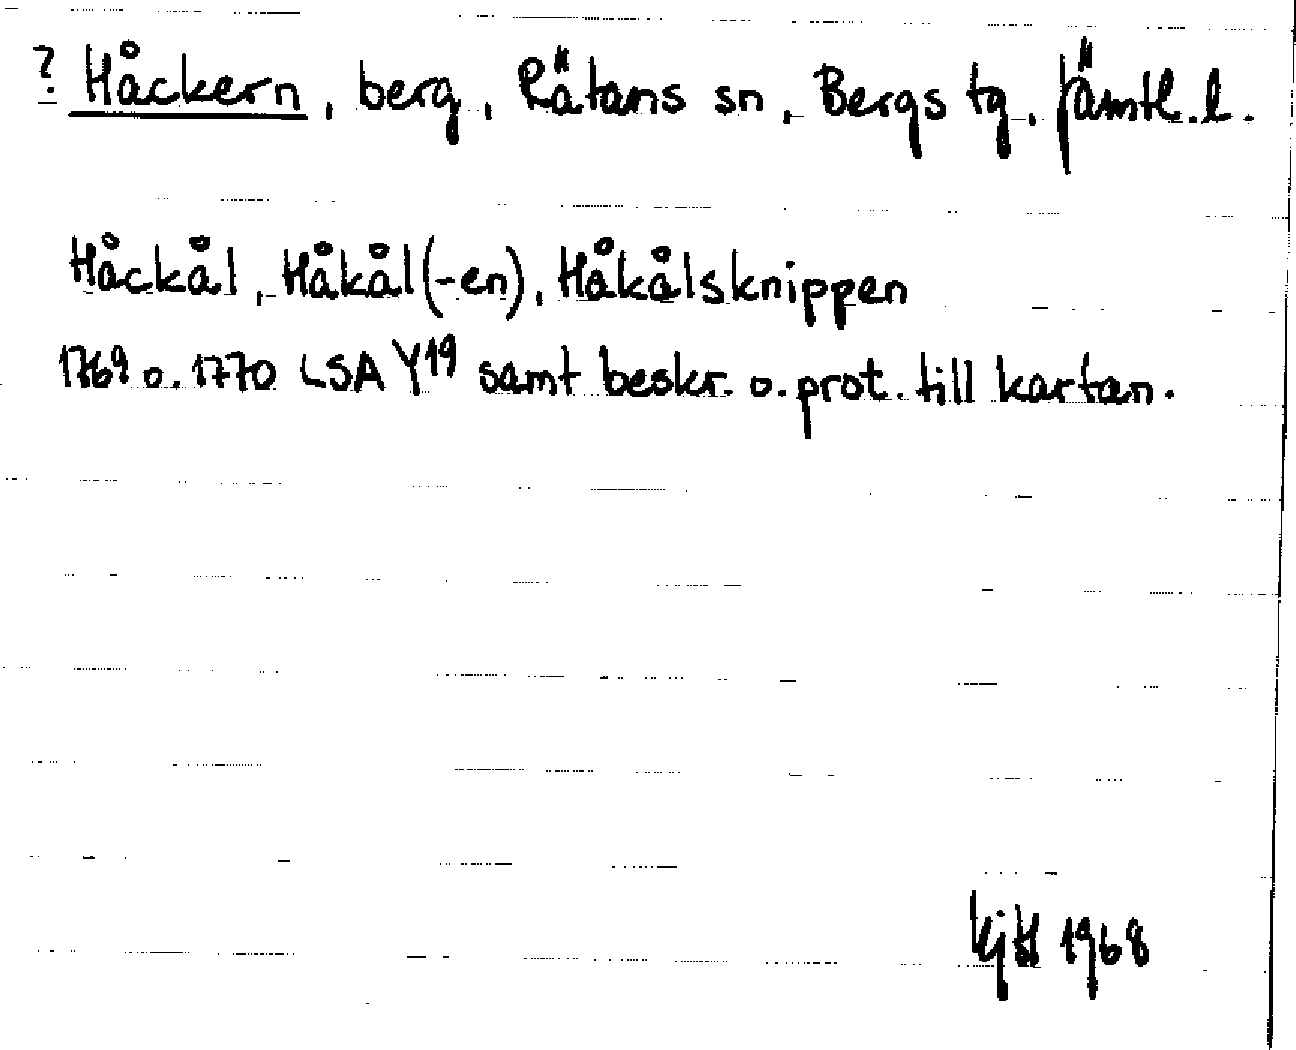 ? Håckern, berg, Rätans sn, Bergs tg, Jämtl. l.
Håckål, Håkål(-en), Håkålsknippen
1769 o. 1770 LSA Y19 samt beskr. o. prot. till kartan.
KjH 1968